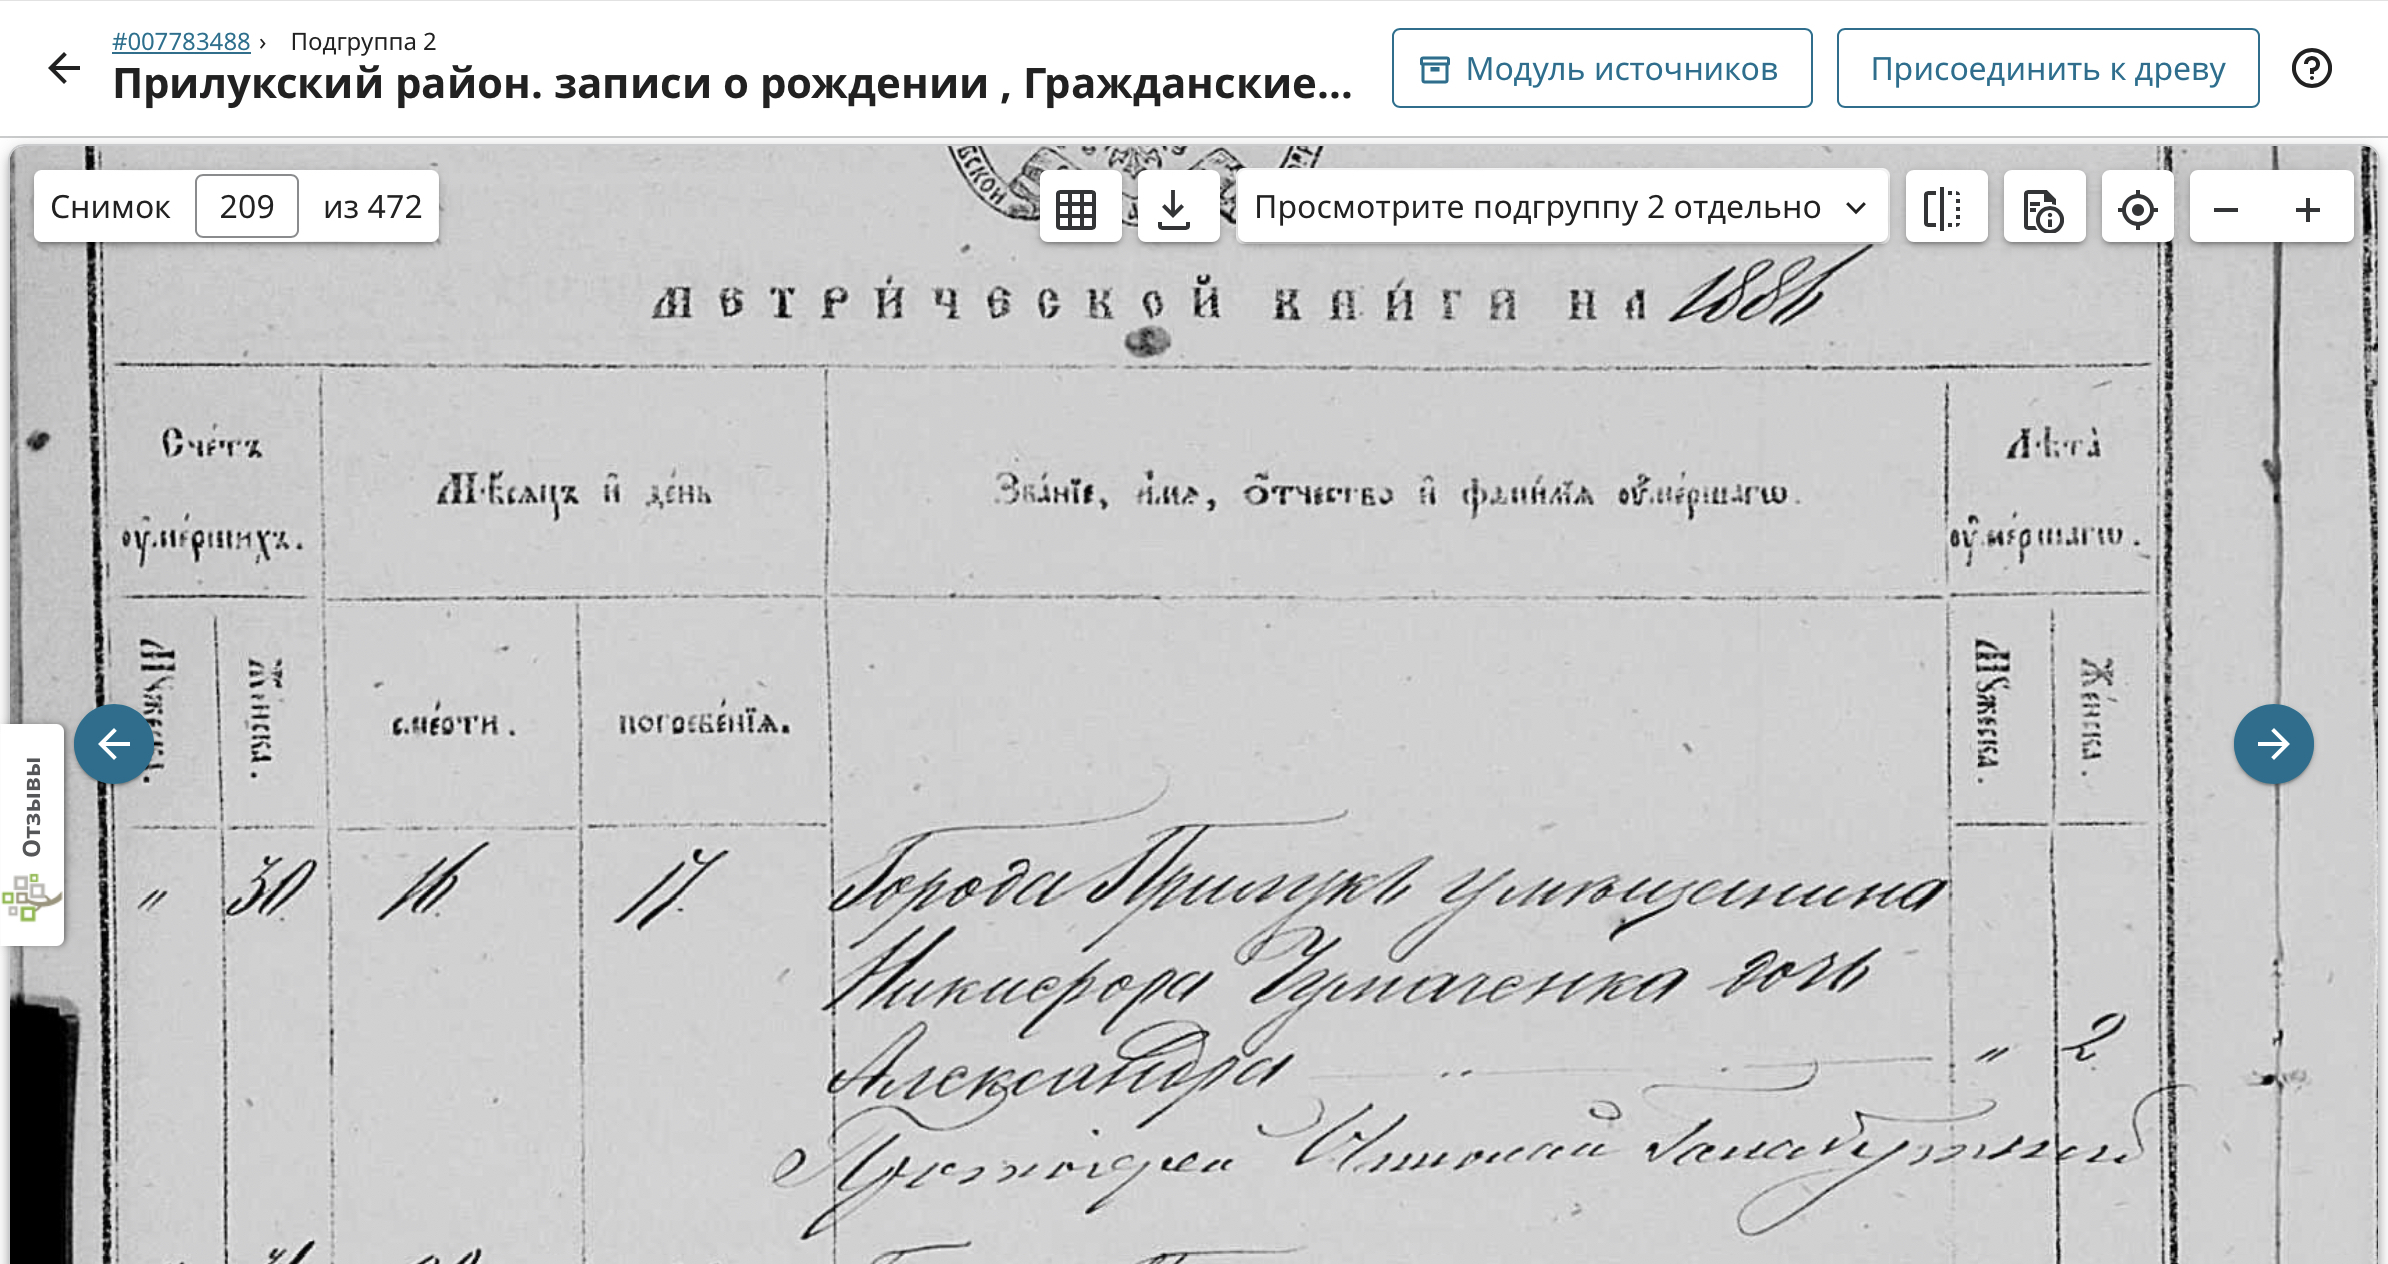 #007783488 › Подгруппа 2
Прилукский район. записи о рождении , Гражданские...
Модуль источников
Присоединить к древу
Снимок 209 из 472
Просмотрите подгруппу 2 отдельно
Отзывы
МЕТРИ́ЧЕСКОЙ КНИ́ГИ НА 1886
Сче́тъ
оу҆ме́ршихъ.
Мѣ́сѧцъ и҆ де́нь
Зва́нїе, и҆́мѧ, ѻ҆́тчество и҆ фами́лїѧ оу҆ме́ршагѡ.
Лѣта̀
оу҆ме́ршагѡ.
Мꙋжеска.
Же́нска.
сме́рти.
погребе́нїѧ.
Мꙋжеска.
Же́нска.
" 30 16. 17. Города Прилукъ у мѣщанина
Никифора Чумаченка дочь
Александра " 2
Протоіерей